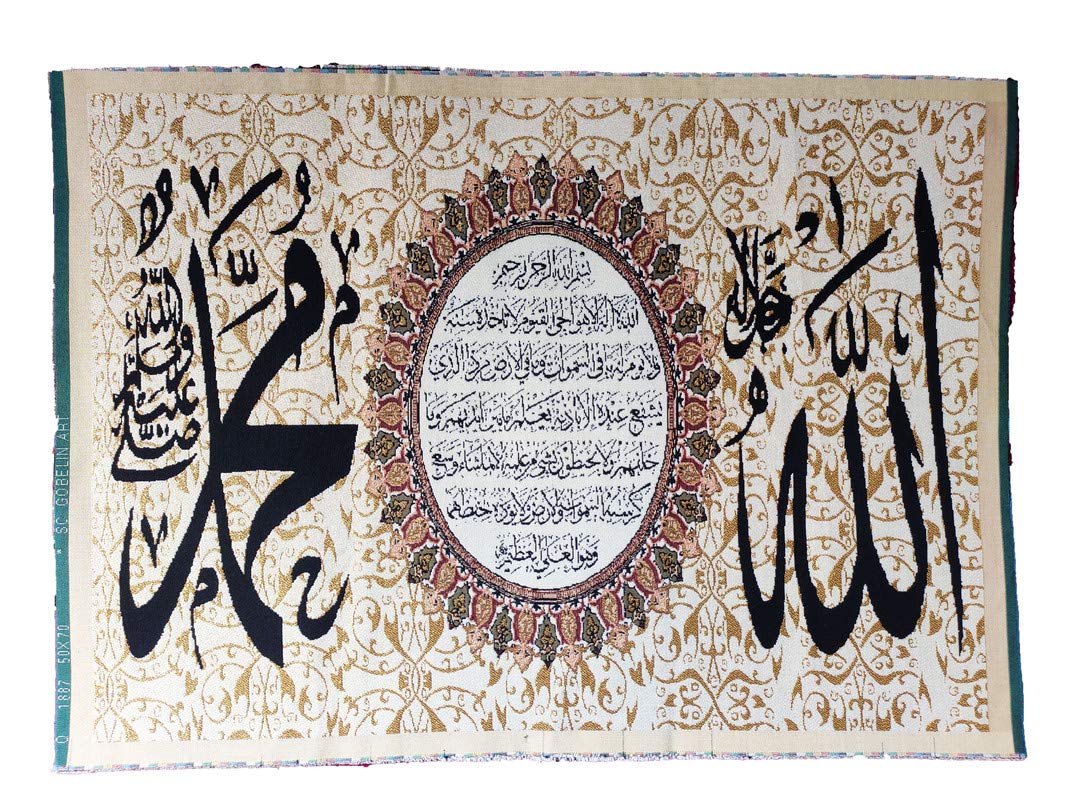 الله
جل جلاله
بسم الله الرحمن الرحيم
الله لا إله إلا هو الحي القيوم لا تأخذه سنة
ولا نوم له ما في السموات وما في الأرض من ذا الذي
يشفع عنده إلا بإذنه يعلم ما بين أيديهم وما
خلفهم ولا يحيطون بشيء من علمه إلا بما شاء وسع
كرسيه السموات والأرض ولا يؤده حفظهما
وهو العلي العظيم
محمد
صلى الله عليه وسلم
O 1887 50X70 * SC GOBELIN ART